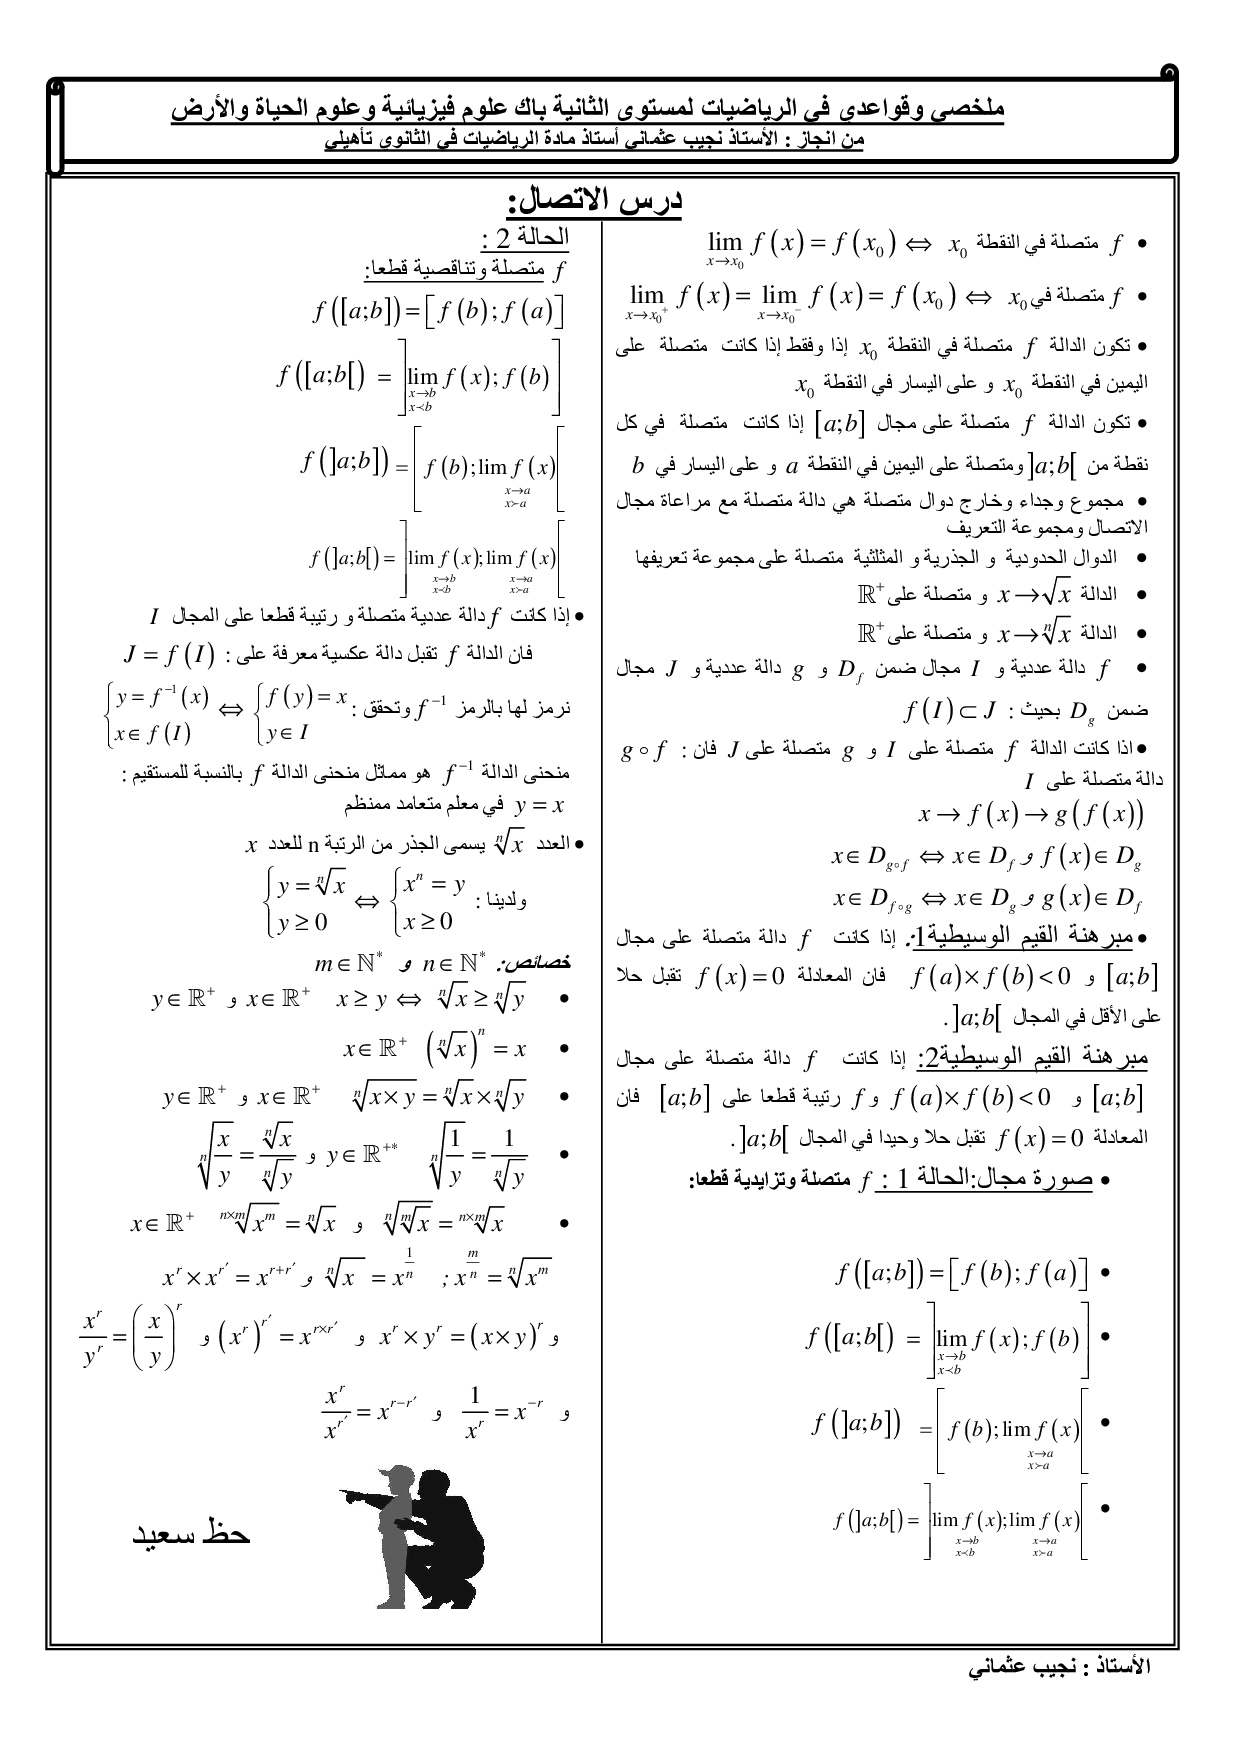 ملخصي وقواعدي في الرياضيات لمستوى الثانية باك علوم فيزيائية وعلوم الحياة والأرض
من انجاز : الأستاذ نجيب عثماني أستاذ مادة الرياضيات في الثانوي تأهيلي
درس الاتصال:
• f متصلة في النقطة x₀ ⇔ lim_{x→x₀} f(x) = f(x₀)
• f متصلة في x₀ ⇔ lim_{x→x₀⁺} f(x) = lim_{x→x₀⁻} f(x) = f(x₀)
• تكون الدالة f متصلة في النقطة x₀ إذا وفقط إذا كانت متصلة على
اليمين في النقطة x₀ و على اليسار في النقطة x₀
• تكون الدالة f متصلة على مجال [a;b] إذا كانت متصلة في كل
نقطة من ]a;b[ ومتصلة على اليمين في النقطة a و على اليسار في b
• مجموع وجداء وخارج دوال متصلة هي دالة متصلة مع مراعاة مجال
الاتصال ومجموعة التعريف
• الدوال الحدودية و الجذرية و المثلثية متصلة على مجموعة تعريفها
• الدالة x → √x و متصلة على ℝ⁺
• الدالة x → ⁿ√x و متصلة على ℝ⁺
• f دالة عددية و I مجال ضمن D_f و g دالة عددية و J مجال
ضمن D_g بحيث : f(I) ⊂ J
• اذا كانت الدالة f متصلة على I و g متصلة على J فان : g∘f
دالة متصلة على I
x → f(x) → g(f(x))
x ∈ D_{g∘f} ⇔ x ∈ D_f و f(x) ∈ D_g
x ∈ D_{f∘g} ⇔ x ∈ D_g و g(x) ∈ D_f
• مبرهنة القيم الوسيطية1: إذا كانت f دالة متصلة على مجال
[a;b] و f(a)×f(b) < 0 فان المعادلة f(x) = 0 تقبل حلا
على الأقل في المجال ]a;b[ .
مبرهنة القيم الوسيطية2: إذا كانت f دالة متصلة على مجال
[a;b] و f(a)×f(b) < 0 و f رتيبة قطعا على [a;b] فان
المعادلة f(x) = 0 تقبل حلا وحيدا في المجال ]a;b[ .
• صورة مجال:الحالة 1 : f متصلة وتزايدية قطعا:
• f([a;b]) = [f(b); f(a)]
• f([a;b[) = ]lim_{x→b, x≺b} f(x); f(b)]
• f(]a;b]) = [f(b); lim_{x→a, x≻a} f(x)[
• f(]a;b[) = ]lim_{x→b, x≺b} f(x); lim_{x→a, x≻a} f(x)[
الحالة 2 :
f متصلة وتناقصية قطعا:
f([a;b]) = [f(b); f(a)]
f([a;b[) = ]lim_{x→b, x≺b} f(x); f(b)]
f(]a;b]) = [f(b); lim_{x→a, x≻a} f(x)[
f(]a;b[) = ]lim_{x→b, x≺b} f(x); lim_{x→a, x≻a} f(x)[
• إذا كانت f دالة عددية متصلة و رتيبة قطعا على المجال I
فان الدالة f تقبل دالة عكسية معرفة على : J = f(I)
نرمز لها بالرمز f⁻¹ وتحقق : { f(y) = x ; y ∈ I ⇔ { y = f⁻¹(x) ; x ∈ f(I)
منحنى الدالة f⁻¹ هو مماثل منحنى الدالة f بالنسبة للمستقيم :
y = x في معلم متعامد ممنظم
• العدد ⁿ√x يسمى الجذر من الرتبة n للعدد x
ولدينا : { xⁿ = y ; x ≥ 0 ⇔ { y = ⁿ√x ; y ≥ 0
خصائص: n ∈ ℕ* و m ∈ ℕ*
• ⁿ√x ≥ ⁿ√y ⇔ x ≥ y x ∈ ℝ⁺ و y ∈ ℝ⁺
• (ⁿ√x)ⁿ = x x ∈ ℝ⁺
• ⁿ√(x×y) = ⁿ√x × ⁿ√y x ∈ ℝ⁺ و y ∈ ℝ⁺
• ⁿ√(1/y) = 1/ⁿ√y y ∈ ℝ⁺* و ⁿ√(x/y) = ⁿ√x/ⁿ√y
• ⁿ√(ᵐ√x) = ⁿˣᵐ√x و ⁿˣᵐ√(xᵐ) = ⁿ√x x ∈ ℝ⁺
x^{m/n} = ⁿ√(xᵐ) ; ⁿ√x = x^{1/n} و x^r × x^{r′} = x^{r+r′}
و x^r × y^r = (x×y)^r و (x^r)^{r′} = x^{r×r′} و x^r/y^r = (x/y)^r
و 1/x^r = x^{−r} و x^r/x^{r′} = x^{r−r′}
حظ سعيد
الأستاذ : نجيب عثماني